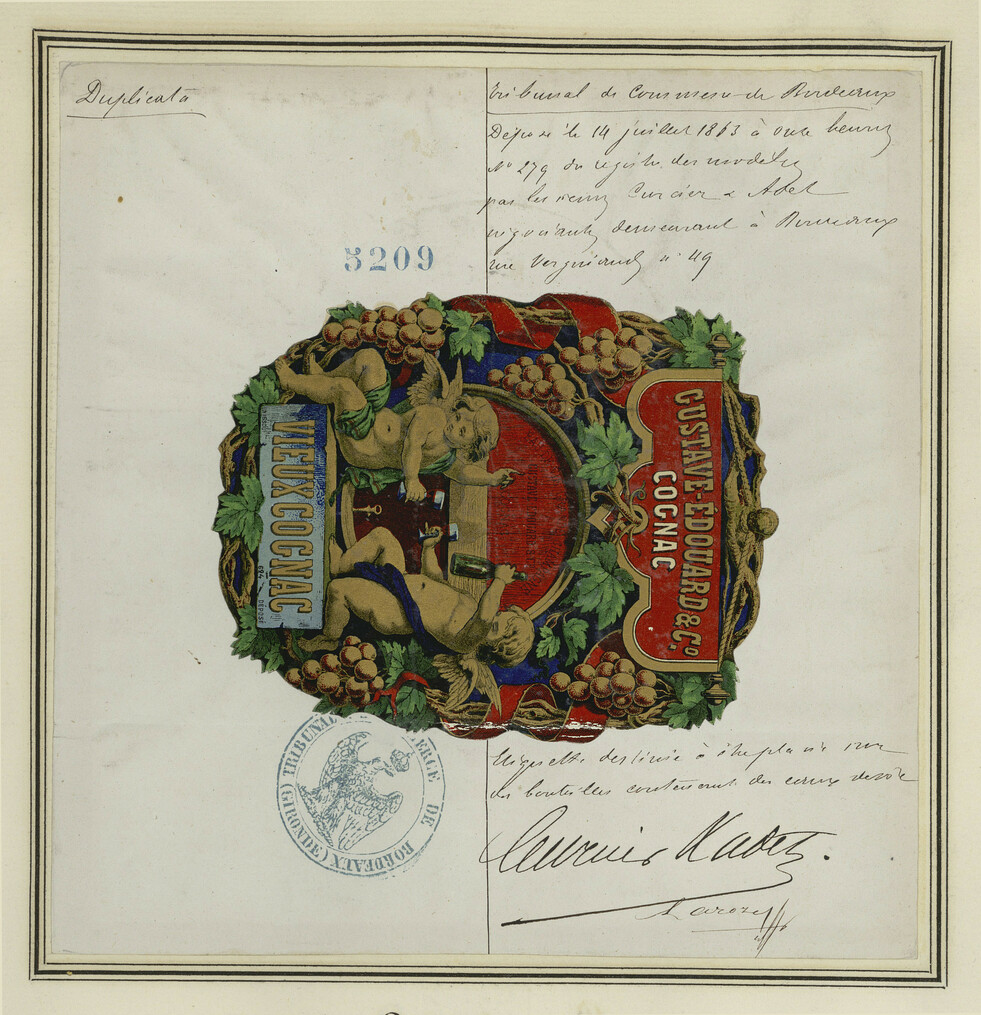 Duplicata
Tribunal de Commerce de Bordeaux
Déposé le 14 juillet 1863 à onze heures
N° 279 du registre des modèles
par les sieurs Curcier & Adet
négociants demeurant à Bordeaux
rue Vergniaud n° 49
5209
GUSTAVE-ÉDOUARD & Co.
COGNAC
VIEUX COGNAC
694 DÉPOSÉ
TRIBUNAL DE COMMERCE DE BORDEAUX (GIRONDE)
Etiquette destinée à être placée sur
des bouteilles contenant des eaux de vie
Curcier & Adet